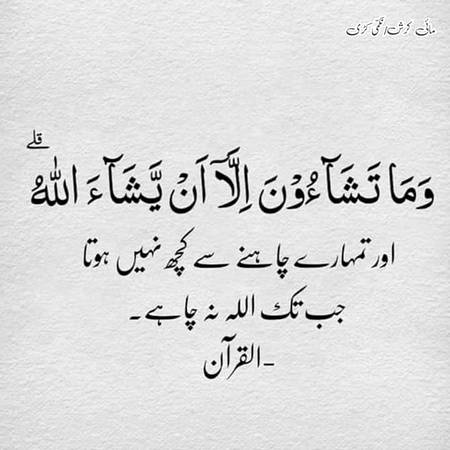 مائی کرش/نکمّی کڑی
وَمَا تَشَآءُوْنَ اِلَّآ اَنْ يَّشَآءَ اللّٰهُ ۗ
اور تمہارے چاہنے سے کچھ نہیں ہوتا
جب تک اللہ نہ چاہے۔
-القرآن